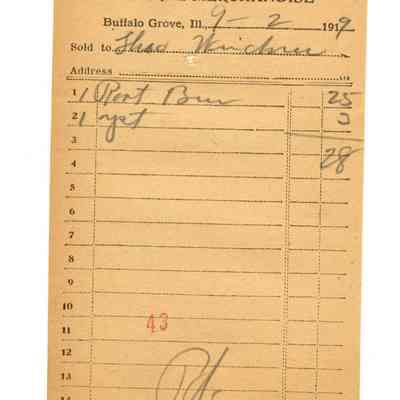 MERCHANDISE
Buffalo Grove, Ill., 9-2 1919
Sold to Theo
Address
1 1 25
2 1 yst 3
3
4 28
5
6
7
8
9
10
11 43
12
13 Pd.
14